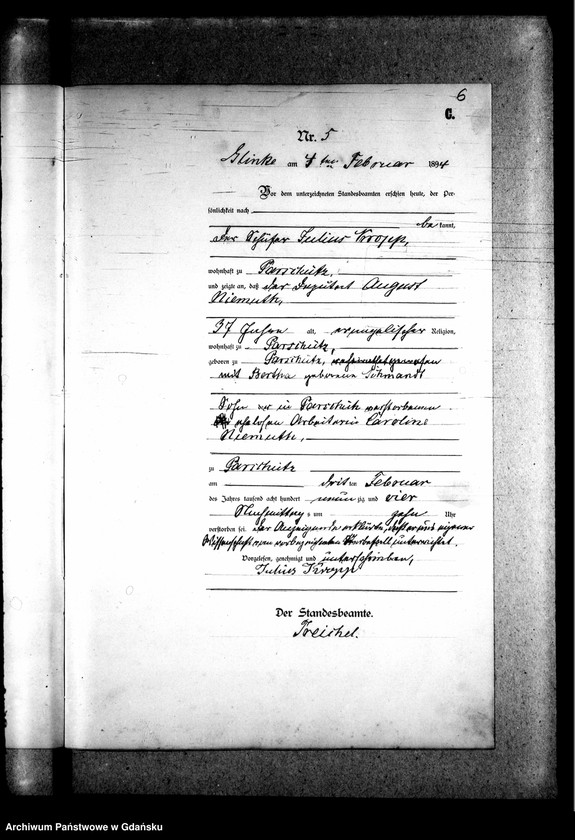 6
C.
Nr. 5
Glinke am 4 ten Februar 1894
Vor dem unterzeichneten Standesbeamten erschien heute, der Per-
sönlichkeit nach
bekannt,
der Schäfer Julius Kropp,
wohnhaft zu Parschütz,
und zeigte an, daß der Deputant August
Niemuth,
37 Jahre alt, evangelischer Religion,
wohnhaft zu Parschütz,
geboren zu Parschütz, verheirathet gewesen
mit Bertha geborene Schmandt
Sohn der in Parschütz verstorbenen
ehelosen Arbeiterin Caroline
Niemuth,
zu Parschütz
am dritten Februar
des Jahres tausend acht hundert neunzig und vier
Nachmittags um zehn Uhr
verstorben sei. Der Anzeigende erklärte, daß er aus eigener
Wissenschaft von vorbezeichneten Sterbefall unterrichtet.
Vorgelesen, genehmigt und unterschrieben,
Julius Kropp
Der Standesbeamte.
Treichel.
Archiwum Państwowe w Gdańsku